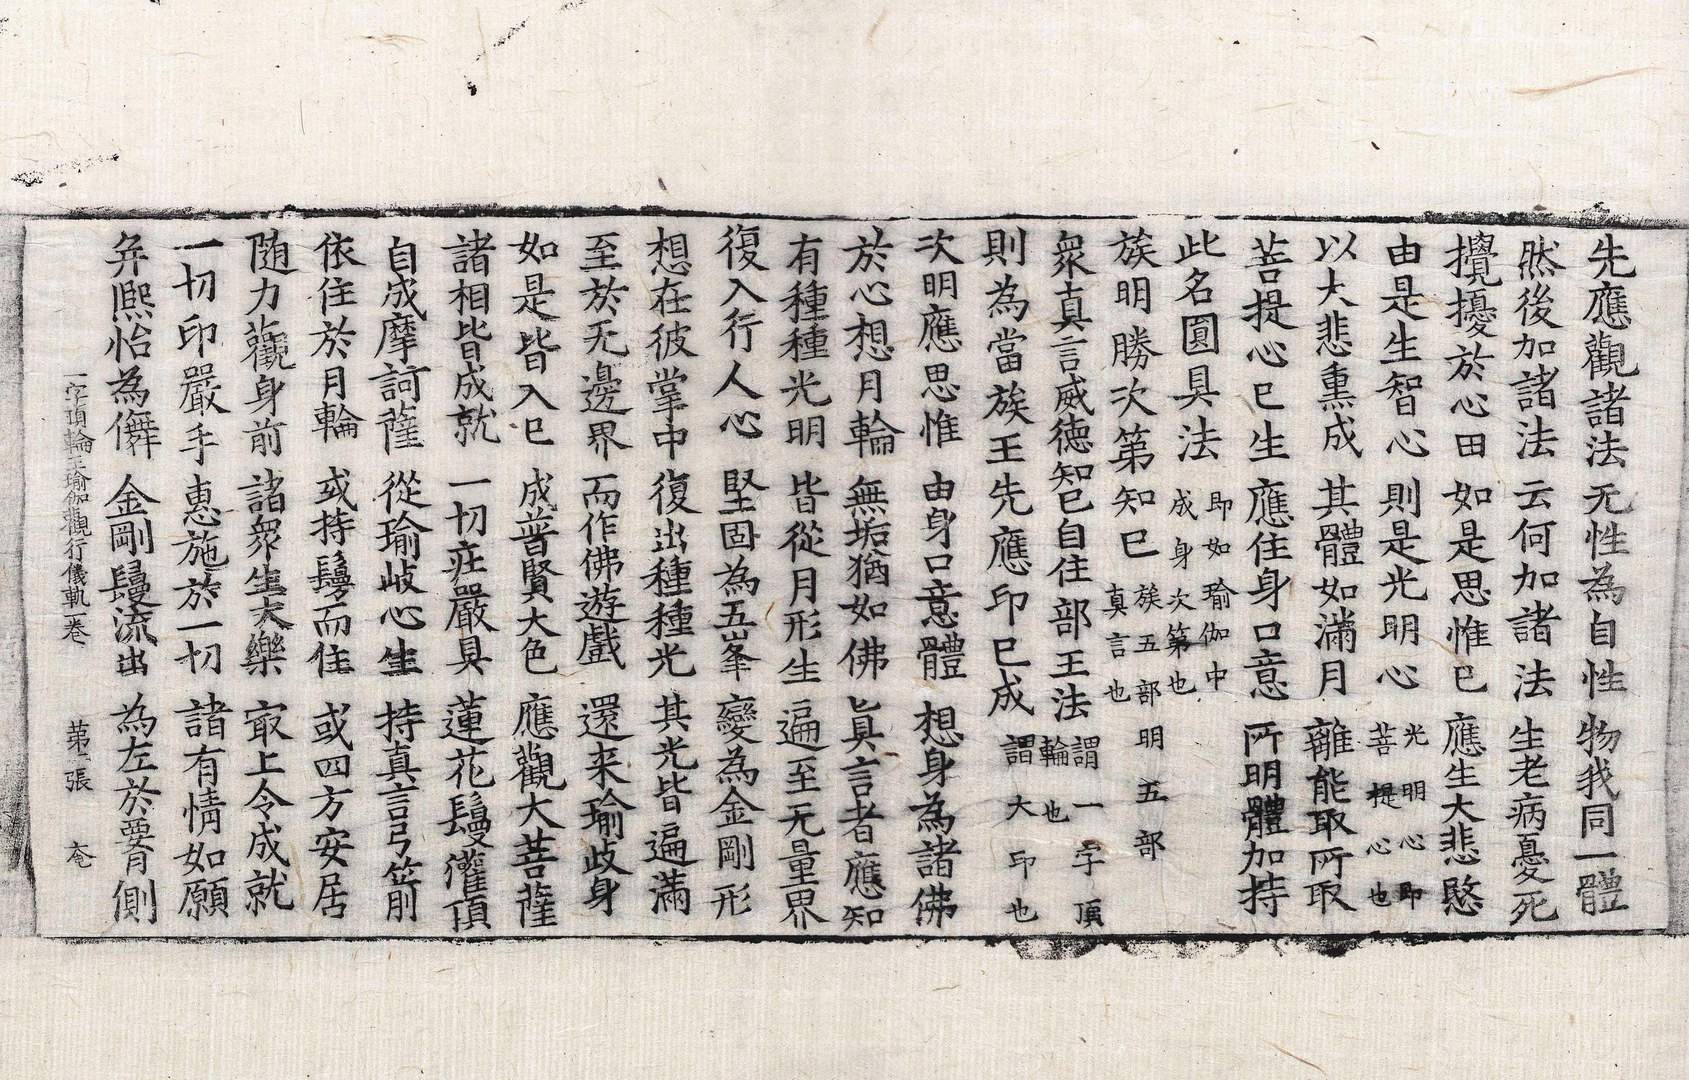 先應觀諸法 无性為自性 物我同一體
然後加諸法 云何加諸法 生老病憂死
攪擾於心田 如是思惟已 應生大悲愍
由是生智心 則是光明心 光明心即菩提心也
以大悲熏成 其體如滿月 離能取所取
菩提心已生 應住身口意 所明體加持
此名圓具法 即如瑜伽中成身次第也
族明勝次第知已 族五部明五部真言也
衆真言威徳知已自住部王法 謂一字頂輪也
則為當族王先應印已成 謂大印也
次明應思惟 由身口意體 想身為諸佛
於心想月輪 無垢猶如佛 真言者應知
有種種光明 皆從月形生 遍至无量界
復入行人心 堅固為五峯 變為金剛形
想在彼掌中 復出種種光 其光皆遍滿
至於无邊界 而作佛遊戲 還来瑜歧身
如是皆入已 成普賢大色 應觀大菩薩
諸相皆成就 一切莊嚴具 蓮花鬘灌頂
自成摩訶薩 從瑜歧心生 持真言弓箭
依住於月輪 或持鬘而住 或四方安居
随力觀身前 諸衆生大樂 㝡上令成就
一切印嚴手 惠施於一切 諸有情如願
并熈怡為儛 金剛鬘流出 為左於脅側
一字頂輪王瑜伽觀行儀軌一卷 第二張